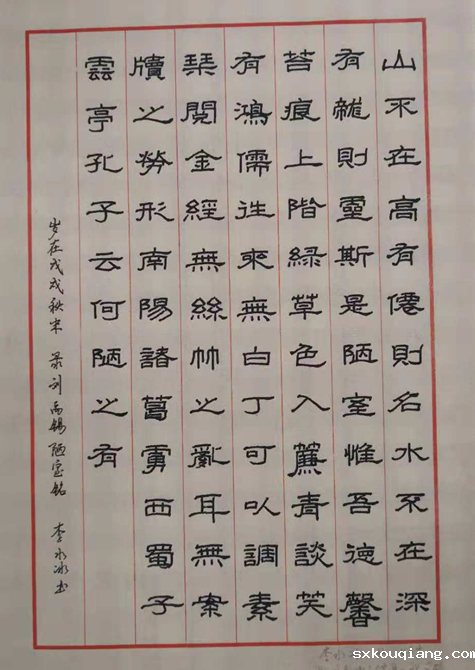 山不在高有僊則名水不在深
有龍則靈斯是陋室惟吾德馨
苔痕上階綠草色入簾青談笑
有鴻儒往來無白丁可以調素
琴閱金經無絲竹之亂耳無案
牘之勞形南陽諸葛廬西蜀子
雲亭孔子云何陋之有
岁在戊戌秋末 录刘禹锡陋室铭 李永冰书
sxkouqiang.com